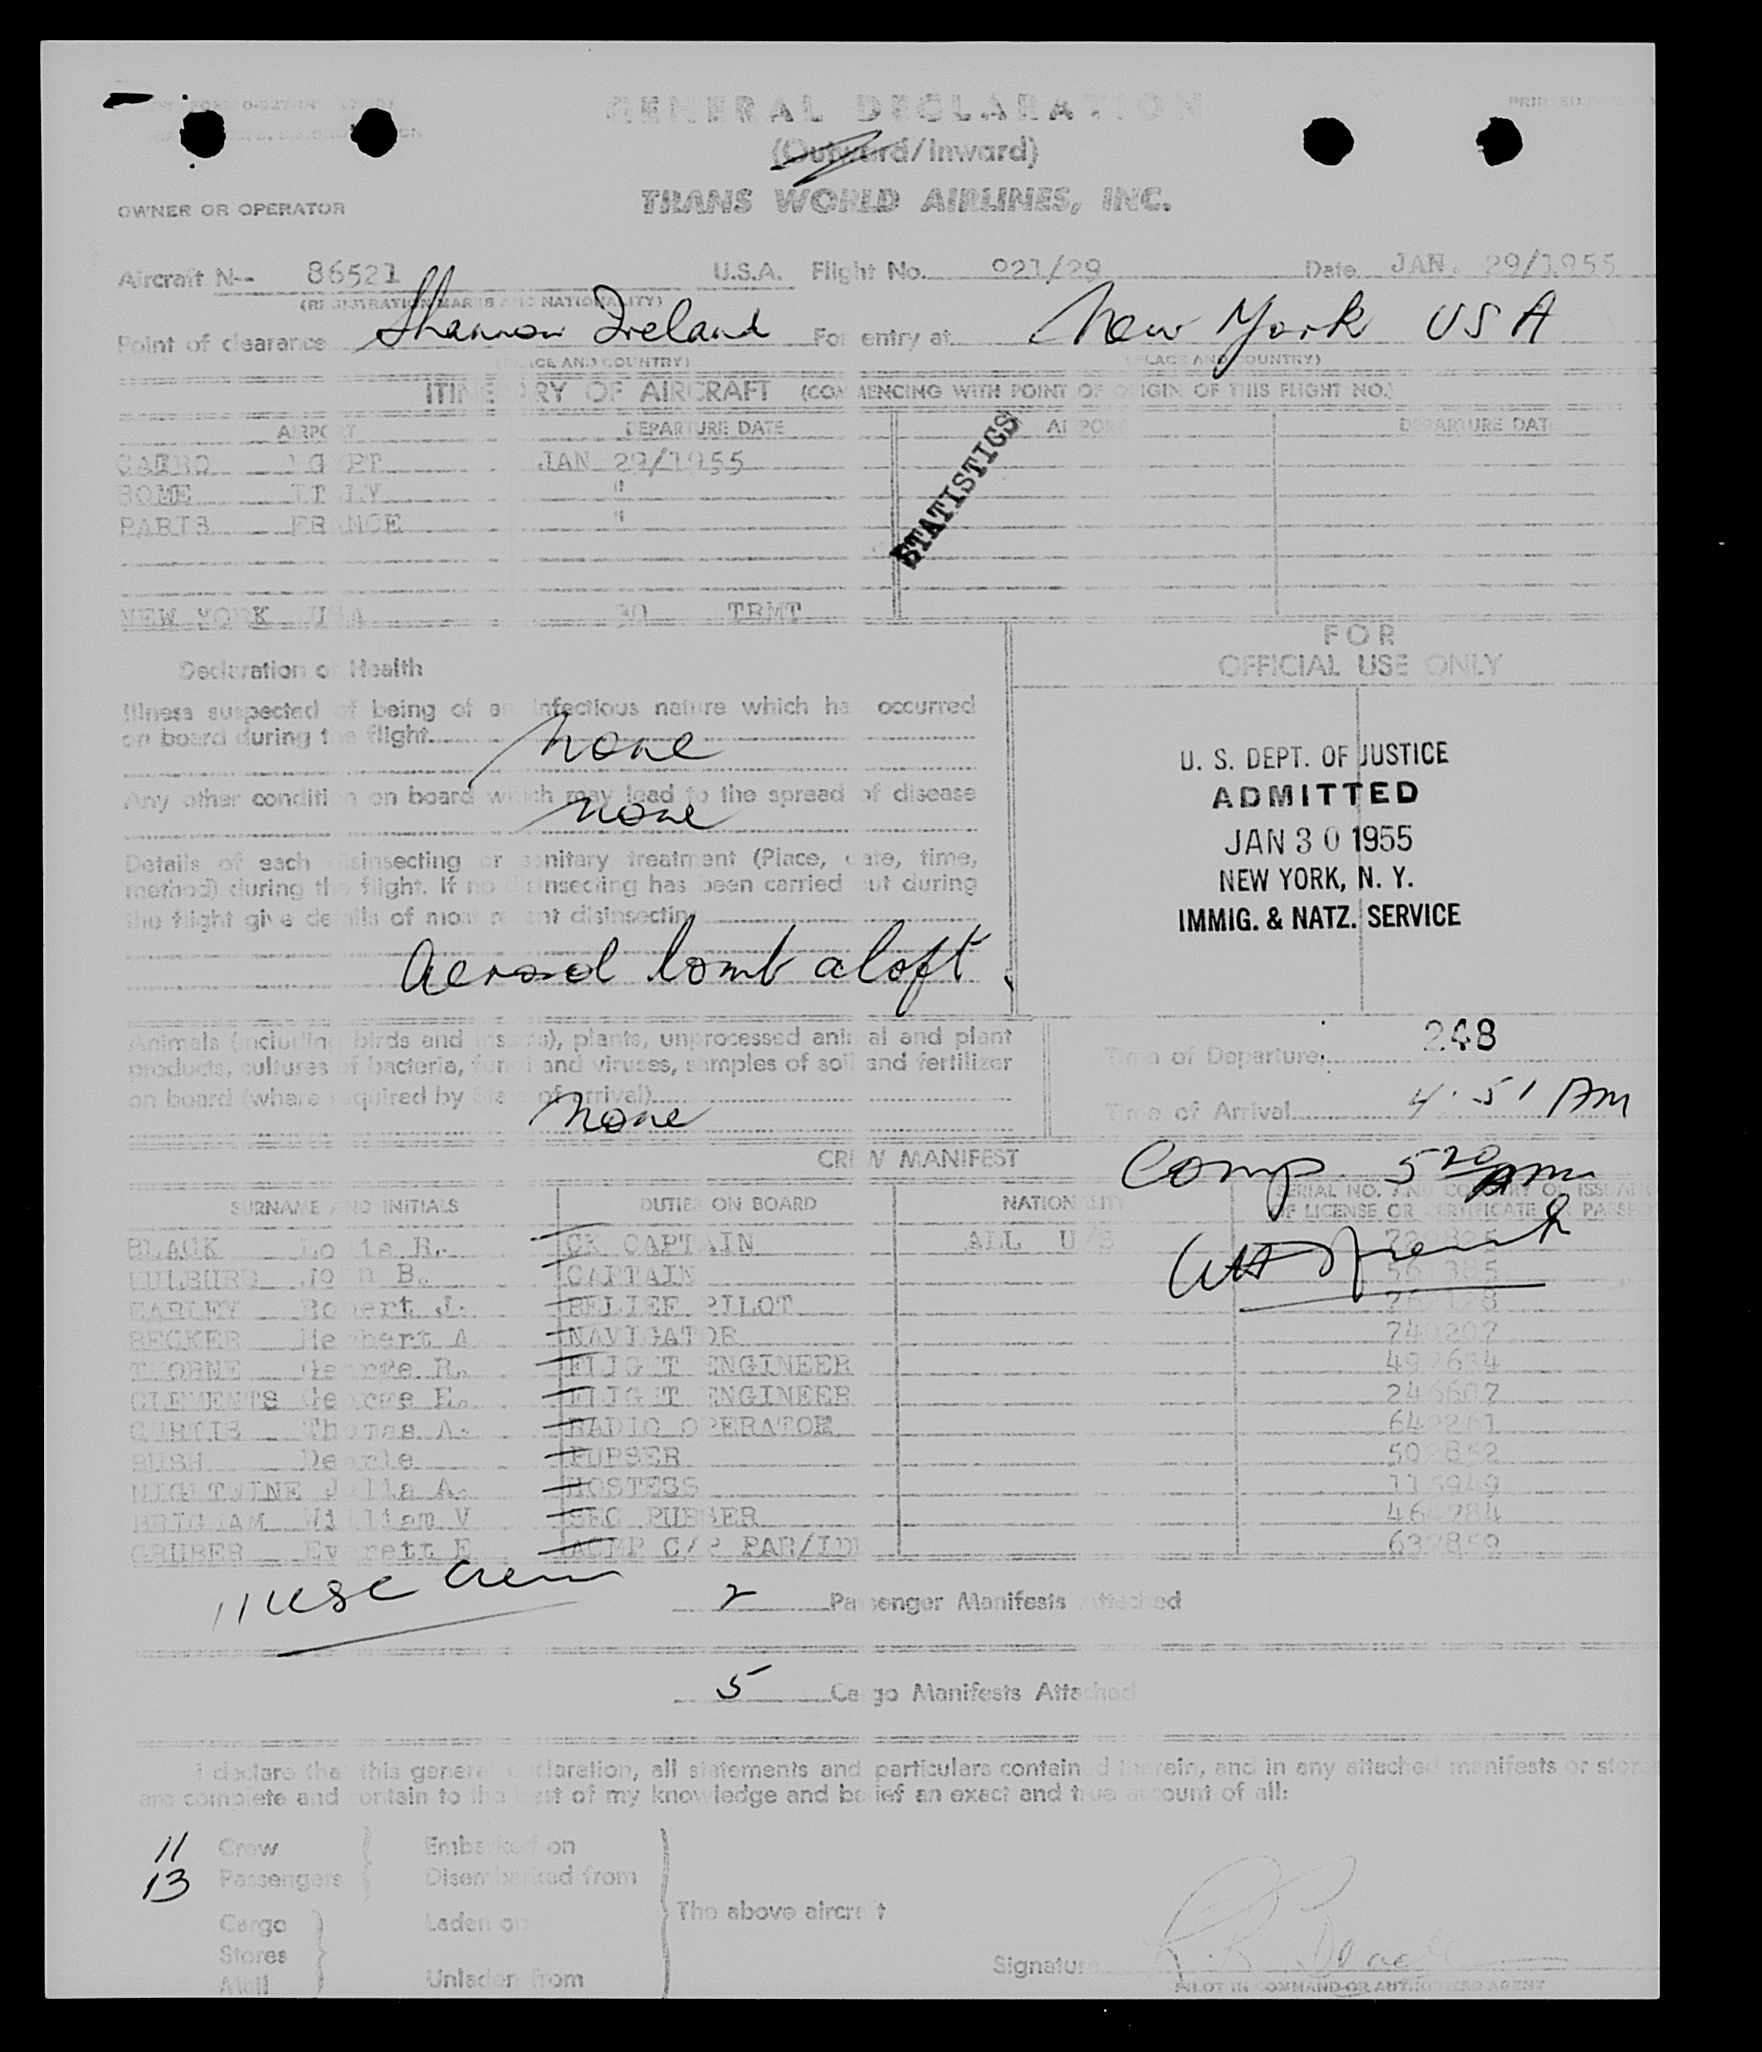 GENERAL DECLARATION
(Outward/Inward)
TRANS WORLD AIRLINES, INC.
OWNER OR OPERATOR
Aircraft N-- 86521 U.S.A. Flight No. 021/29 Date JAN. 29/1955
(REGISTRATION MARKS AND NATIONALITY)
Point of clearance Shannon Ireland For entry at New York USA
(PLACE AND COUNTRY) (PLACE AND COUNTRY)
ITINERARY OF AIRCRAFT (COMMENCING WITH POINT OF ORIGIN OF THIS FLIGHT NO.)
AIRPORT DEPARTURE DATE AIRPORT DEPARTURE DATE
CAIRO EGYPT JAN 29/1955
ROME ITALY "
PARIS FRANCE "
STATISTICS
NEW YORK USA 30 TRMT
FOR
OFFICIAL USE ONLY
Declaration of Health
Illness suspected of being of an infectious nature which has occurred
on board during the flight
None
Any other condition on board which may lead to the spread of disease
None
Details of each disinsecting or sanitary treatment (Place, date, time,
method) during the flight. If no disinsecting has been carried out during
the flight give details of most recent disinsecting
Aerosol bomb aloft
U. S. DEPT. OF JUSTICE
ADMITTED
JAN 30 1955
NEW YORK, N. Y.
IMMIG. & NATZ. SERVICE
Animals (including birds and insects), plants, unprocessed animal and plant
products, cultures of bacteria, fungi and viruses, samples of soil and fertilizer
on board (where required by State of arrival)
None
Time of Departure: 248
Time of Arrival 4:51 AM
Comp. 5 20 AM
CREW MANIFEST
SURNAME AND INITIALS DUTIES ON BOARD NATIONALITY SERIAL NO. AND COUNTRY OF ISSUANCE
OF LICENSE OR CERTIFICATE OR PASSPORT
BLACK R. CK CAPTAIN ALL U/S
John B. CAPTAIN
EARLEY Robert J. RELIEF PILOT
BECKER Herbert A NAVIGATOR
THORNE George R. FLIGHT ENGINEER
CLEMENTS George H. FLIGHT ENGINEER
CURTIS Thomas A. RADIO OPERATOR
BUSH PURSER
NIGHTWINE Julia A. HOSTESS
BRIGHAM William V SEC PURSER
GRUBER Everett E
11 USC Crew
2 Passenger Manifests Attached
5 Cargo Manifests Attached
I declare that this general declaration, all statements and particulars contained therein, and in any attached manifests or stores
are complete and contain to the best of my knowledge and belief an exact and true account of all:
11 Crew Embarked on
13 Passengers Disembarked from
The above aircraft
Cargo Laden on
Stores
Mail Unladen from
Signature
PILOT IN COMMAND OR AUTHORIZED AGENT